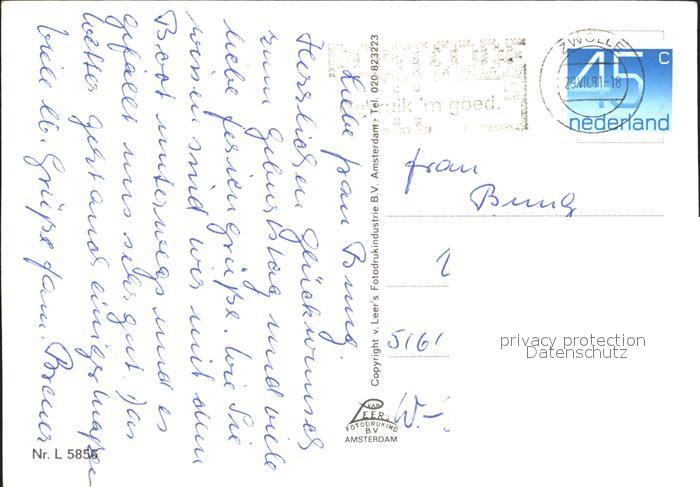 Liebe Frau Bung.
Herzlichen Glückwunsch
zum Geburtstag und viele
liebe Feriengrüße. Wie Sie
wissen sind wir mit dem
Boot unterwegs und es
gefällt uns sehr gut. Das
Wetter ist auch einigermaßen
Viele lb. Grüße Fam. Breuer
Nr. L 5856
Copyright v. Leer's Fotodrukindustrie B.V. Amsterdam - Tel. 020-823223
VAN
LEER
FOTODRUKIND
BV
AMSTERDAM
'm goed.
ZWOLLE
29.VII.81-18
45 C
nederland
Frau
Bung
5161
W.-
privacy protection
Datenschutz